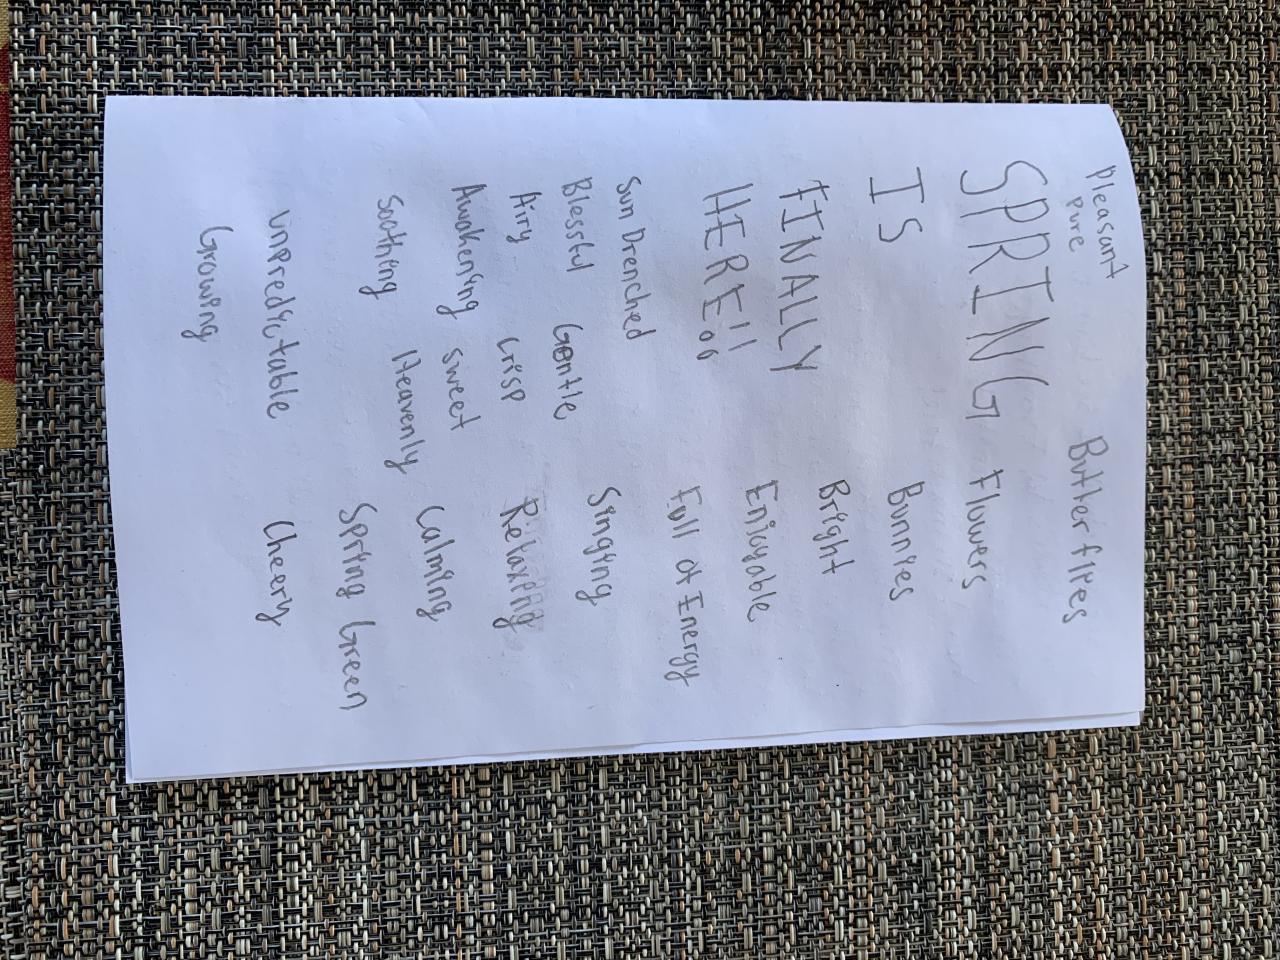 Pleasant
Pure
Butterflies
SPRING
Flowers
IS
Bunnies
FINALLY
Bright
HERE!!
Enjoyable
Sun Drenched
Full of Energy
Blessful
Gentle
Singing
Airy
Crisp
Relaxing
Awakening
Sweet
Calming
Soothing
Heavenly
Spring Green
Unpredictable
Cheery
Growing